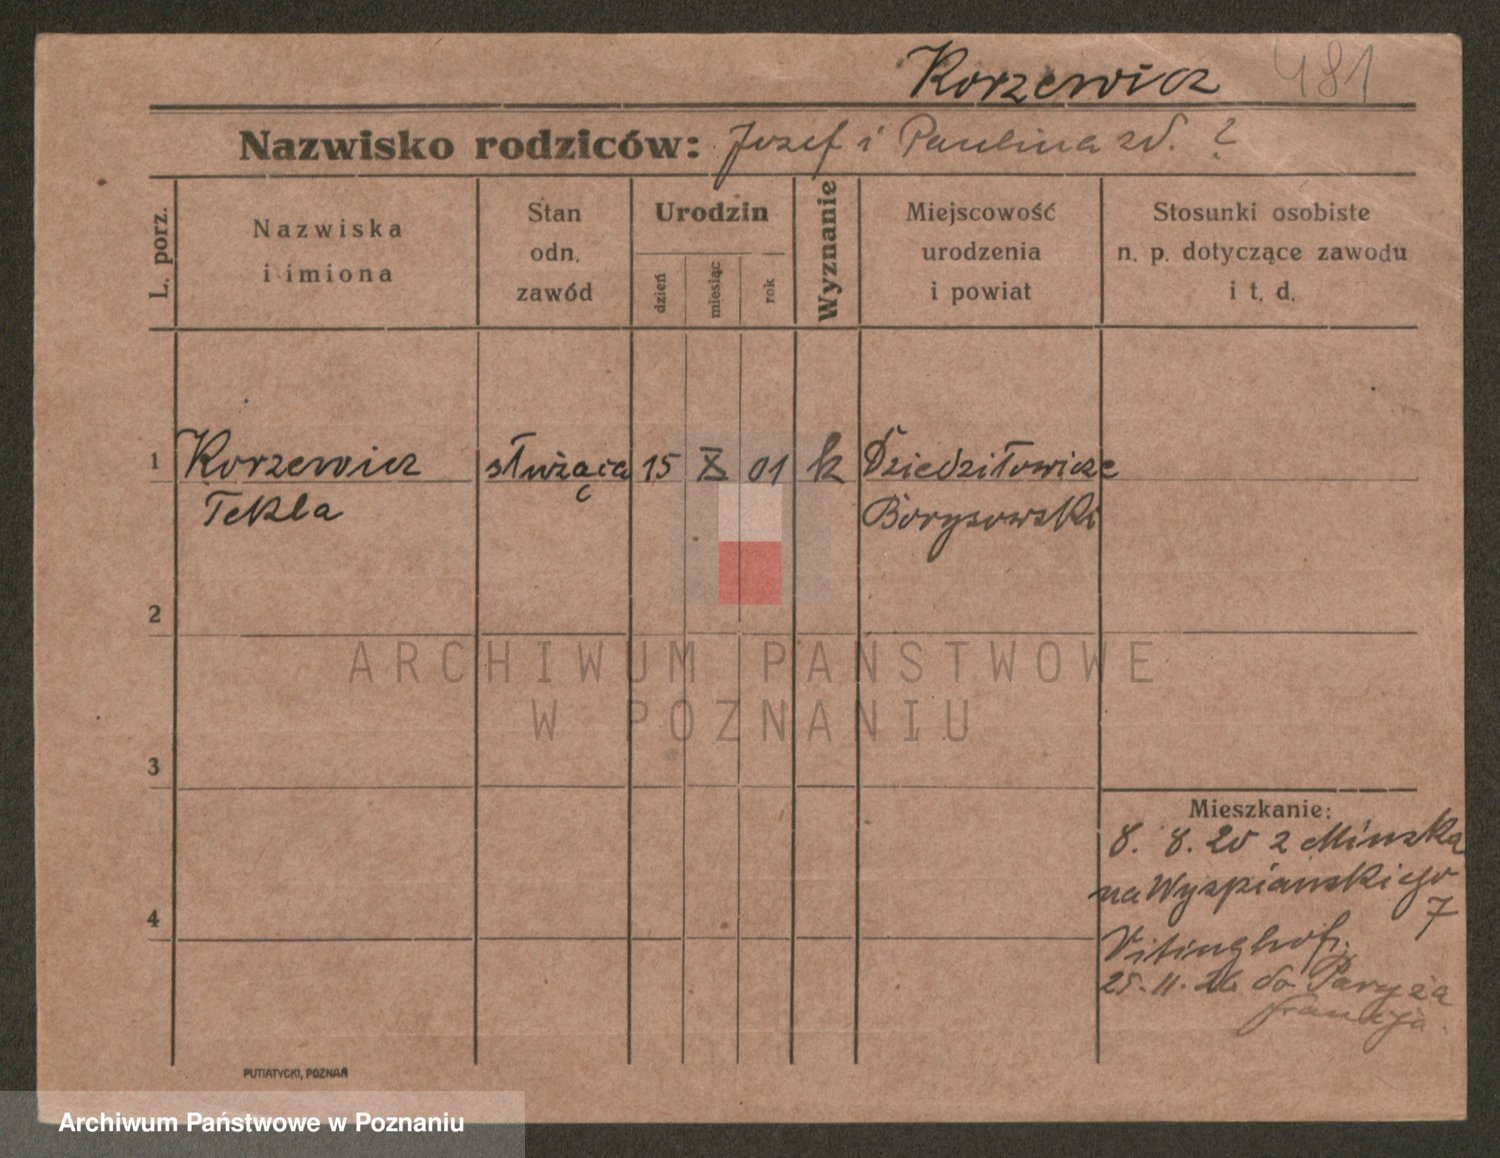 Korzewicz 481
Nazwisko rodziców: Jozef i Paulina zd. ?
L. porz.
Nazwiska
i imiona
Stan
odn.
zawód
Urodzin
dzień
miesiąc
rok
Wyznanie
Miejscowość
urodzenia
i powiat
Stosunki osobiste
n. p. dotyczące zawodu
i t. d.
1 Korzewicz służąca 15 X 01 k Dziedziłowicze
Tekla Borysowski
2
ARCHIWUM PAŃSTWOWE
W POZNANIU
3
Mieszkanie:
8. 8. 20 z Mińska
na Wyspiańskiego
7
4
Vitinghof.
25. 11. 26 do Paryża
Francja
PUTIATYCKI, POZNAŃ
Archiwum Państwowe w Poznaniu